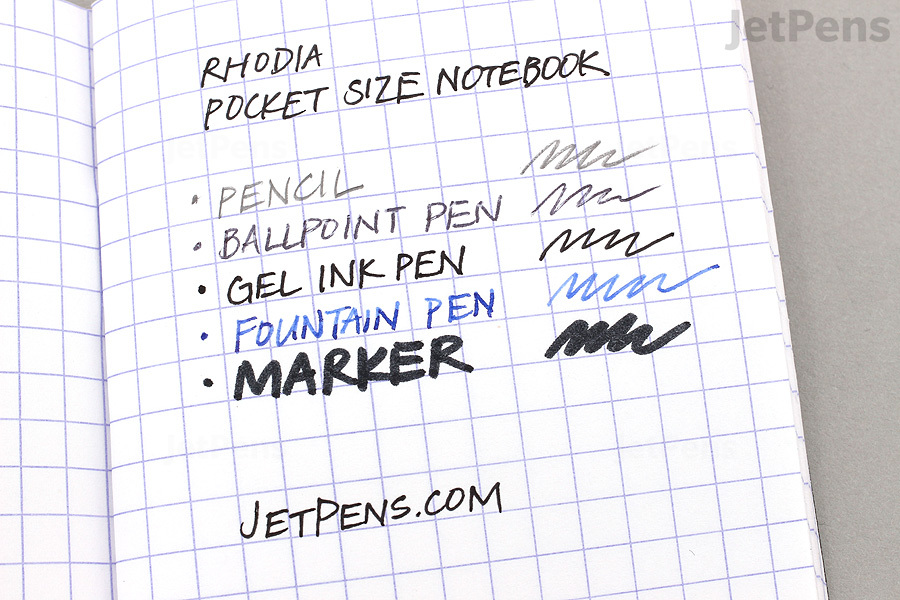 JetPens
RHODIA
POCKET SIZE NOTEBOOK
• PENCIL
• BALLPOINT PEN
• GEL INK PEN
• FOUNTAIN PEN
• MARKER
JETPENS.COM